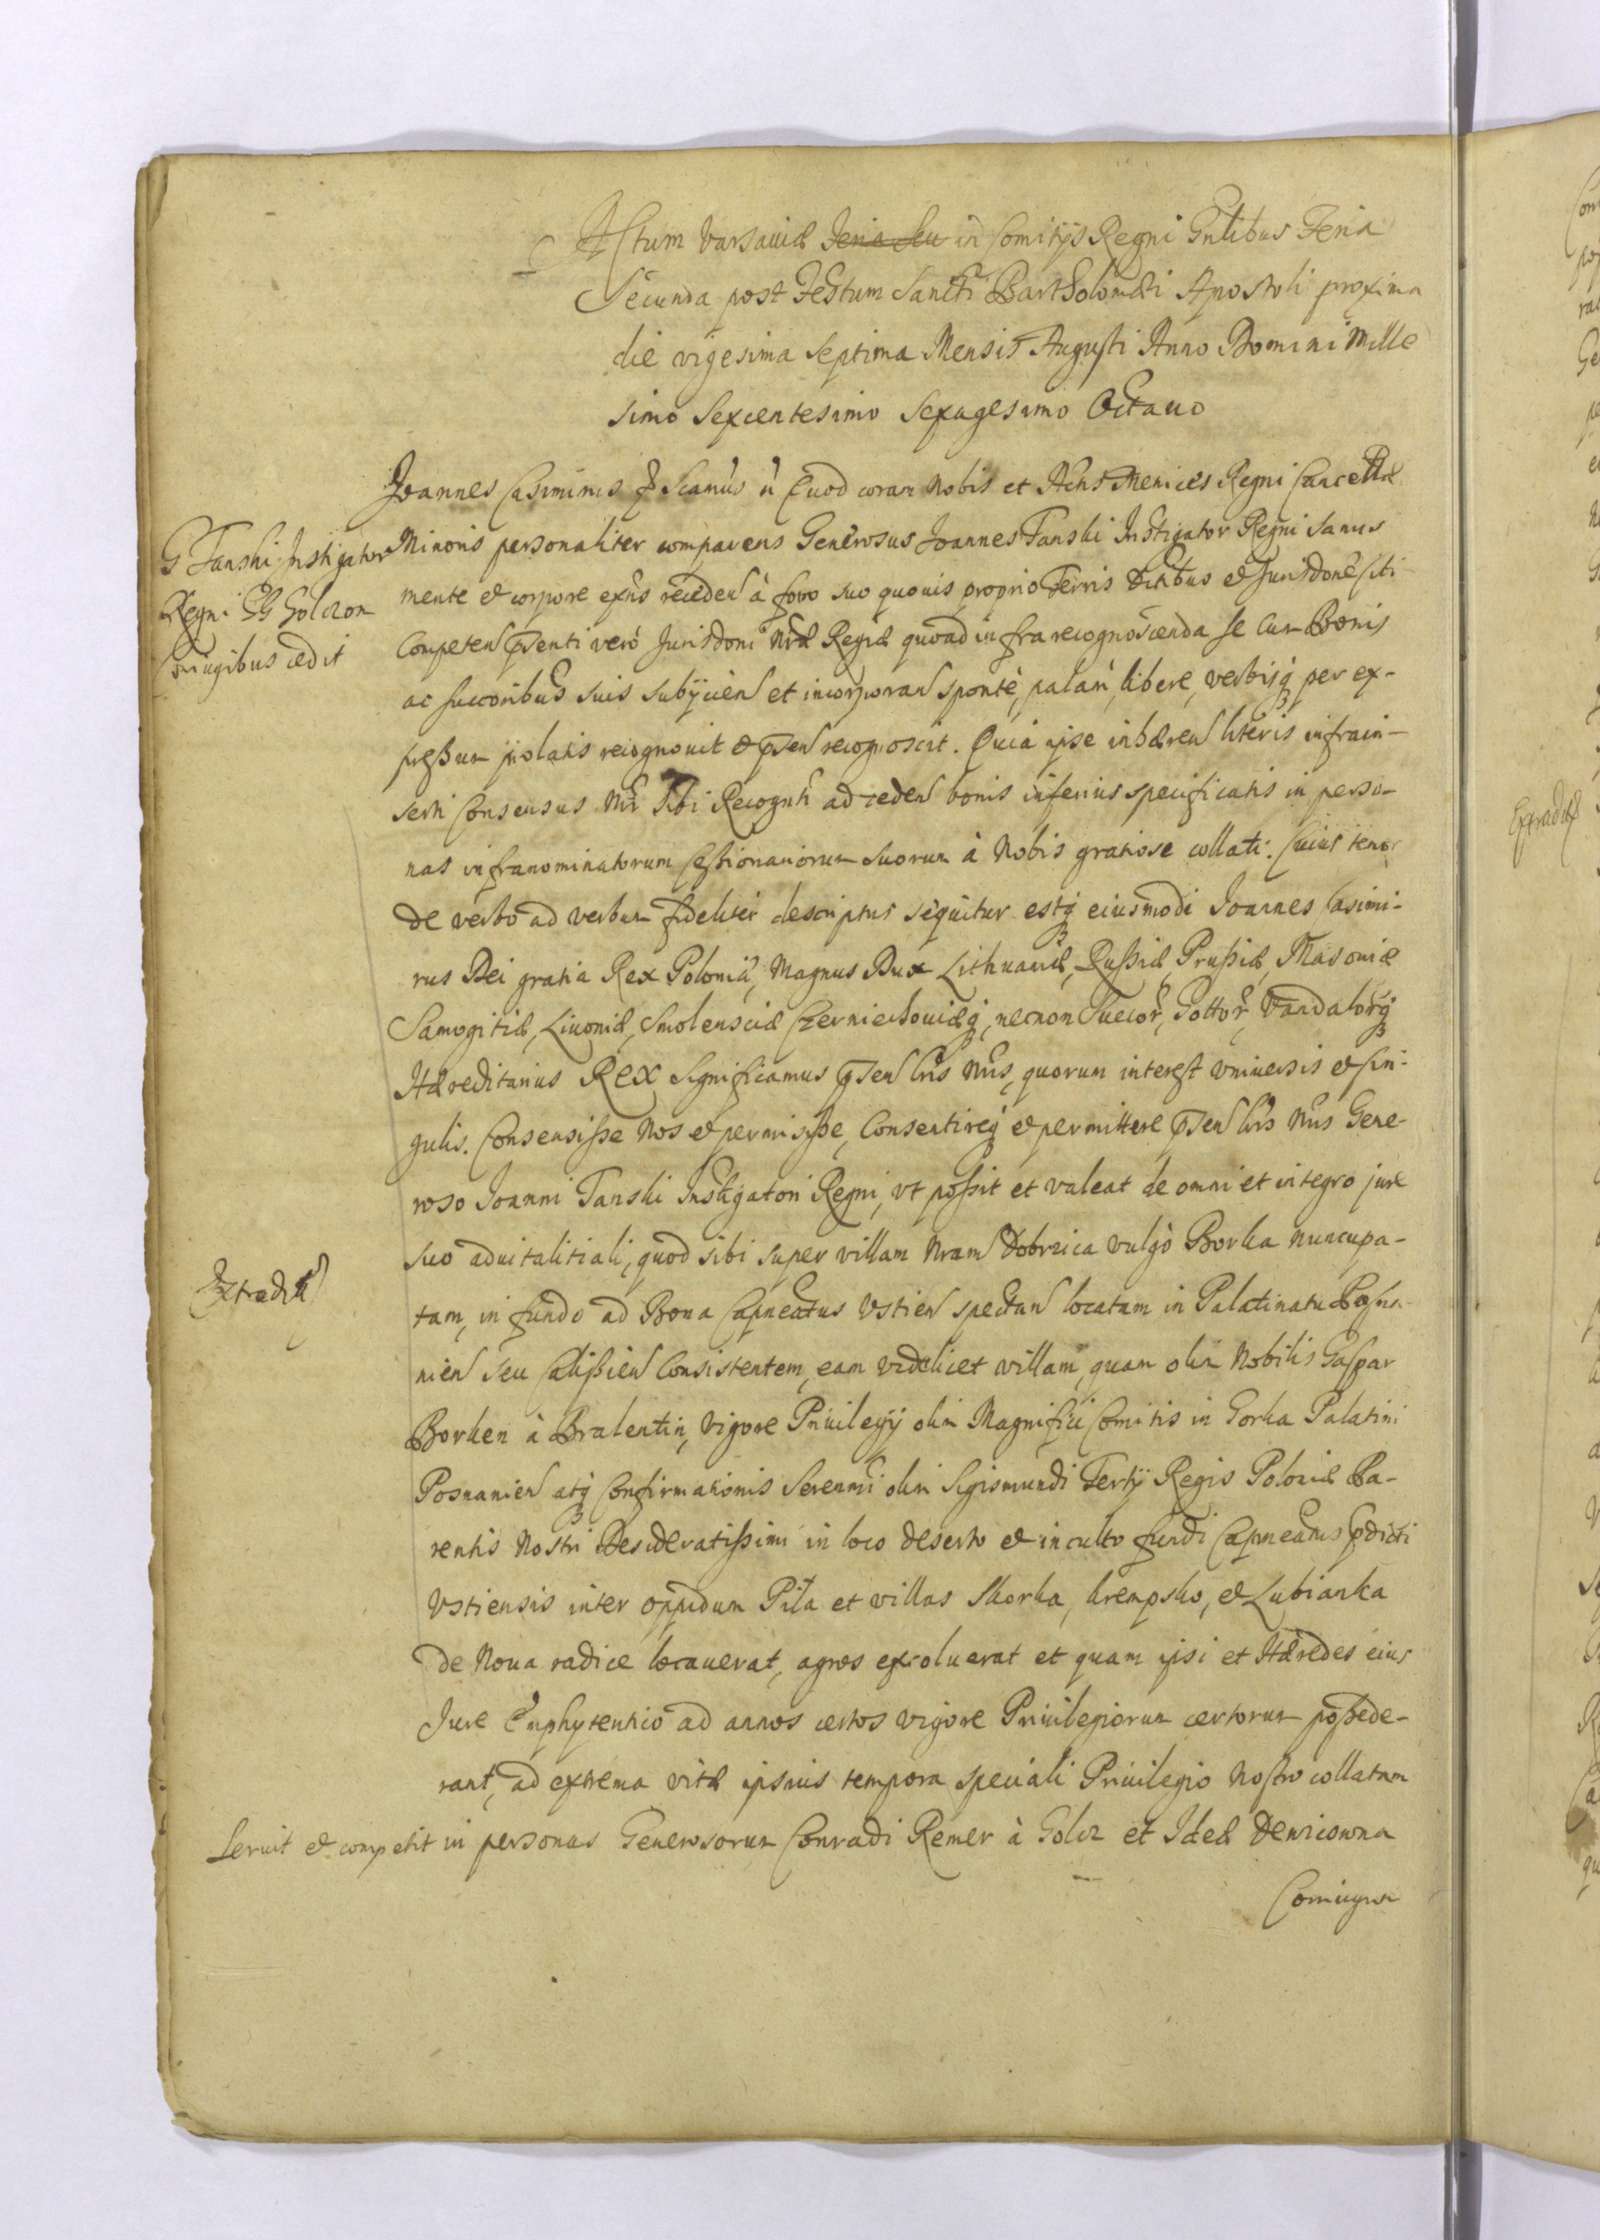 Actum Varsaviæ Feria Seu in Comitijs Regni Gnlibus Feria
Secunda post Festum Sancti Bartholomæi Apostoli proxima
die vigesima Septima Mensis Augusti Anno Domini Mille
simo Sexcentesimo Sexagesimo Octauo
Joannes Casimirus Scamus Quod coram Nobis et Actis Metrices Regni Cancellæ
G Tanski Instigator
Regni GG Golczon
Coniugibus cedit
Minoris personaliter comparens Generosus Joannes Tanski Instigator Regni Sanus
mente et corpore exns receden à foro suo quouis proprio Terris Ditibus et Jurisdone sibi
Competen psenti verò Jurisdoni Nræ Regiæ quoad infra recognoscenda se cum Bonis
ac succoribus suis subijcien et incorporan sponte, palam, libere, verbisq per ex-
pressum prolatis recognouit et psen recognoscit. Quia ipse inhæren literis infra in-
serti Consensus Nri sibi Recognti ad ceden bonis inferius specificatis in perso-
nas infranominatorum Cessionariorum suorum à Nobis gratiose collati. Cuius tenor
de verbo ad verbum fideliter descriptus sequitur estq eiusmodi Joannes Casimi-
rus Dei gratia Rex Poloniæ, Magnus Dux Lithuaniæ, Russiæ, Prussiæ, Masoniæ
Samogitiæ, Liuoniæ, Smolensciæ Czerniechouiæq, necnon Suecor, Gottor, Vandalorq
Hæreditarius REX Significamus psen lris Nris, quorum interest vniuersis et sin-
gulis. Consensisse Nos et permisisse, Consentireq et permittere psen lris Nris Gene-
roso Joanni Tanski Instigatori Regni, vt possit et valeat de omni et integro jure
suo aduitalitiali, quod sibi super villam Nram Dobrzica vulgò Borka nuncupa-
Extradit
tam, in fundo ad Bona Capneatus Vstien spectan locatam in Palatinatu Posna-
nien seu Calissien Consistentem, eam videlicet villam, quam olim Nobilis Gaspar
Borken à Bralentin, vigore Priuilegij olim Magnifici Comitis in Gorka Palatini
Posnanien atq Confirmationis Serenmi olim Sigismundi Tertij Regis Poloniæ Pa-
rentis Nostri Desideratissimi in loco deserto et inculto fundi Capneatus pdicti
Vstiensis inter oppidum Piła et villas Skorka, krempsko, et Lubianka
de Noua radice locauerat, agros exsoluerat et quam ipsi et Hæredes eius
Jure Emphyteutico ad annos certos vigore Priuilegiorum certorum possede-
rant, ad extrema vitæ ipsius tempora speciali Priuilegio Nostro collatum
seruit et competit in personas Generosorum Conradi Remer à Golcz et Idæ Dewiczowna
Coniugum